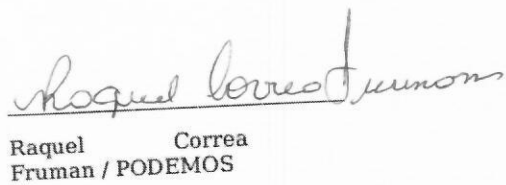 Raquel Correa Frumam
Raquel Correa
Fruman / PODEMOS